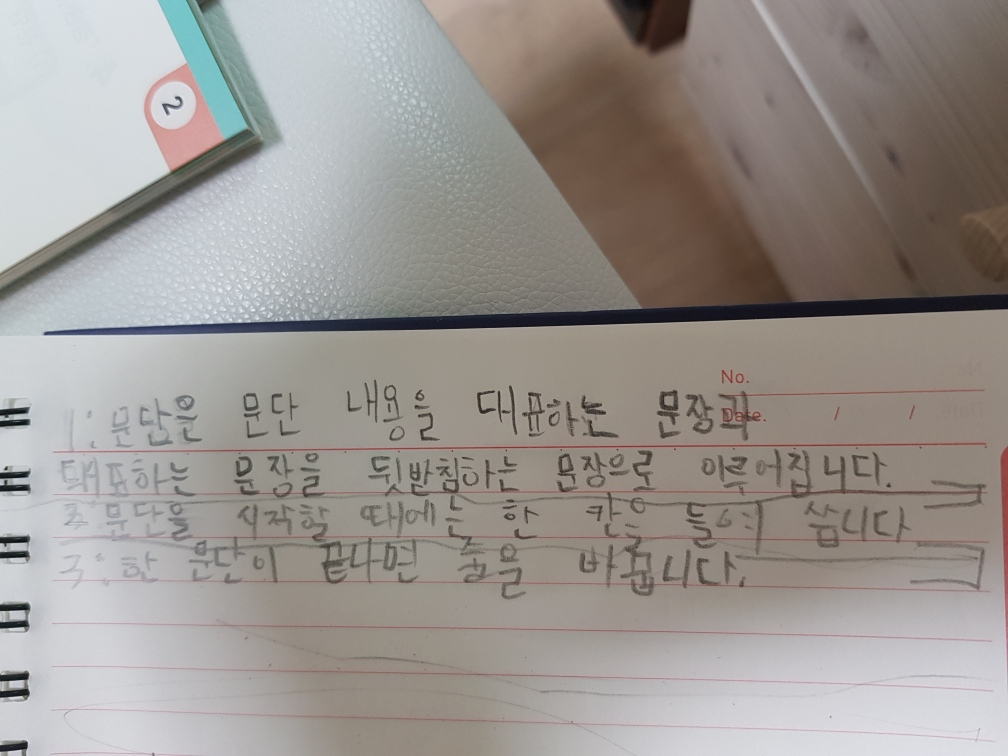 2
No.
Date. / /
1: 문단은 문단 내용을 대표하는 문장과
대표하는 문장을 뒷받침하는 문장으로 이루어집니다.
2: 문단을 시작할 때에는 한 칸을 들여 씁니다
3: 한 문단이 끝나면 줄을 바꿉니다.